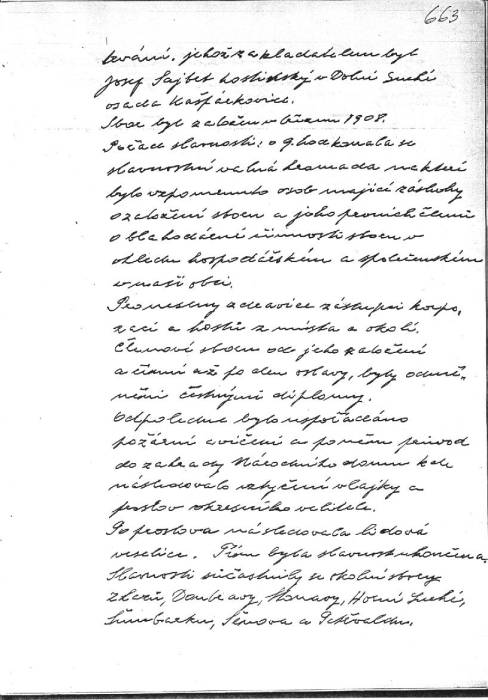 663
trvání, jehož zakladatelem byl
Josef Sajbet hostinský v Dolní Suché
osada Kašpárkovice.
Sbor byl založen v březnu 1908.
Pořad slavnosti: o 9. hod konala se
slavnostní valná hromada na které
bylo vzpomenuto osob mající zásluhy
o založení sboru a jeho prvních členů
o blahodárné činnosti sboru v
ohledu hospodářském a společenském
v naší obci.
Proneseny zdravice zástupci korpo,
rací a hostů z místa a okolí.
Členové sboru od jeho založení
a činní až po den oslavy, byly odmě-
něni čestnými diplomy.
Odpoledne bylo uspořádáno
požární cvičení a po něm průvod
do zahrady Národního domu kde
následovalo vztyčení vlajky a
proslov okresního velitele.
Po proslovu následovala lidová
veselice. Tím byla slavnost ukončena.
Slavnosti súčastnily se okolní sbory
z Doubravy, Stonavy, Horní Suché,
Šumbarku, Šenova a Petřvaldu.